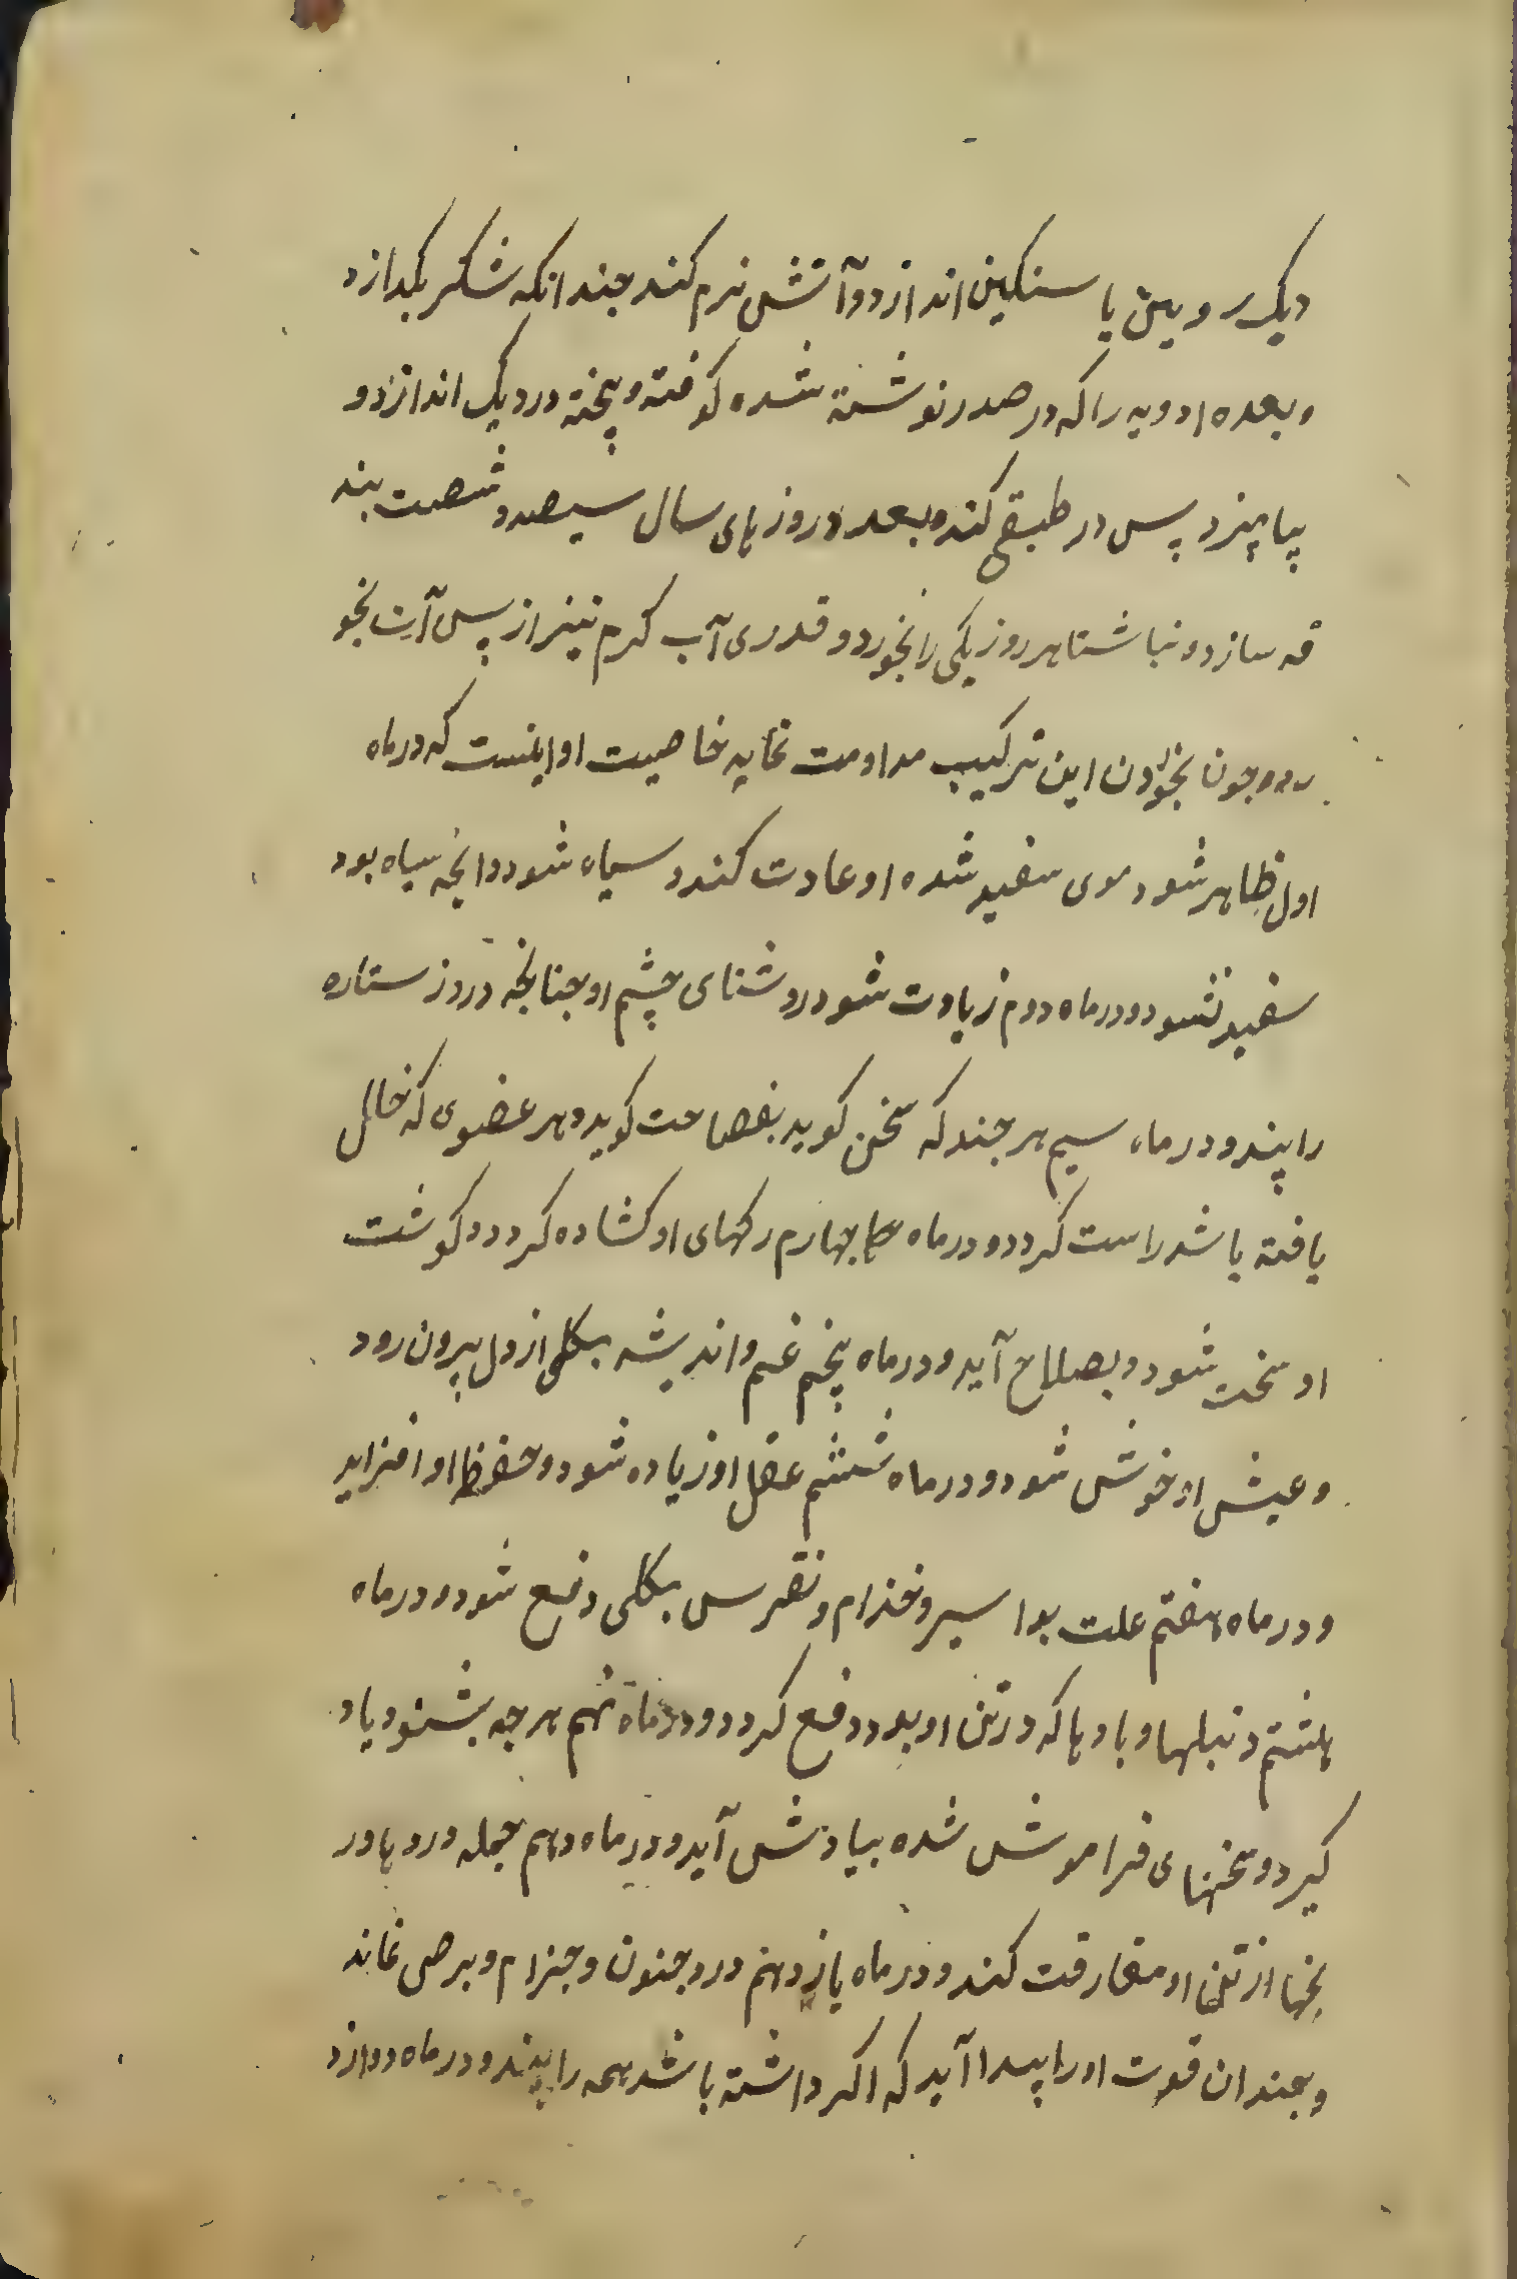 دیک رویین یا سنکین اندازد و آتش نرم کند چندانکه شکر بکدازد
و بعده ادویه را که در صدر نوشته شده کوفته و پیخته در دیک اندازد و
بیامیزد پس در طبقی کند و بعد روزهای سال سیصد و شصت بند
قه سازد و نباشتا هر روز یکی را بخورد و قدری آب کرم نیز از پس آن بخو
رد و چون بخوردن این ترکیب مداومت نماید خاصیت او اینست که در ماه
اول ظاهر شود موی سفید شده او عادت کند و سیاه شود و انچه سیاه بود
سفید نشود و در ماه دوم زیادت شود روشنای چشم او چنانچه در روز ستاره
را بیند و در ماه سیم هر چند که سخن کوید بفصاحت کوید و هر عضوی که خلل
یافته باشد راست کردد و در ماه چهارم رکهای او کشاده کردد و کوشت
او سخت شود و بصلاح آید و در ماه پنجم غم و اندیشه بکلی از دل بیرون رود
و عیش او خوش شود و در ماه ششم عقل او زیاده شود و حفظ او افزاید
و در ماه هفتم علت بواسیر و خذام و نقرس بکلی دفع شود و در ماه
هشتم دنبلها و بادها که در تن او بود دفع کردد و در ماه نهم هر چه بشنود یاد
کیرد و سخنهای فراموش شده بیادش آید و در ماه دهم جمله دردها و ر
نجها از تن او مفارقت کند و در ماه یازدهم درد جنون و جزام و برص نماند
و چندان قوت او را پیدا آید که اکر داشته باشد همه را بیند و در ماه دوازد